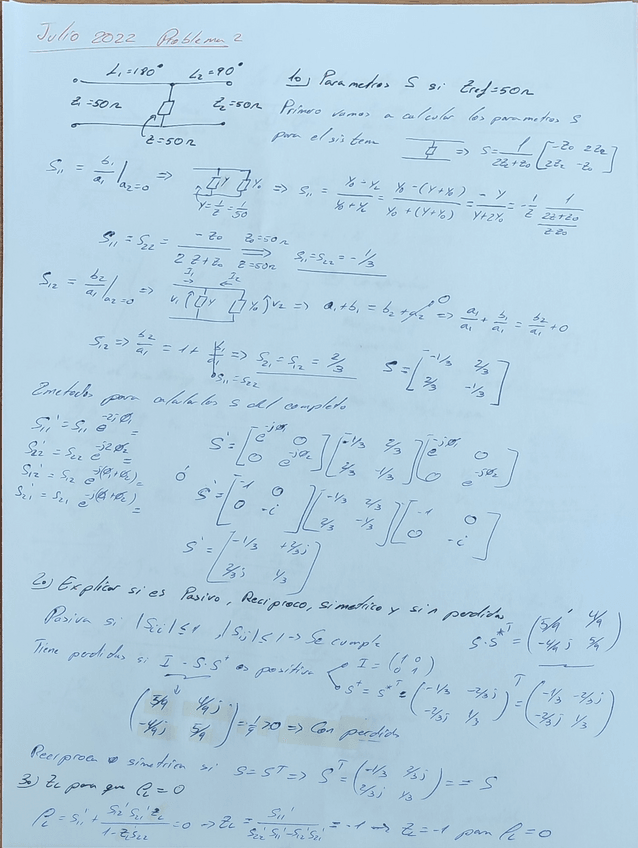 Julio 2022 Problema 2
L₁=180° L₂=90°
Z₁=50Ω Z₂=50Ω
Z=50Ω
1o) Parametros S si Zref=50Ω
Primero vamos a calcular los parametros S
para el sistema => S = 1/(2Z+Z0) [-Z0 2Z; 2Z -Z0]
S₁₁ = b₁/a₁ |a₂=0 => Y Y₀ => S₁₁ = (Y₀-Y_L)/(Y₀+Y_L) = (Y₀-(Y+Y₀))/(Y₀+(Y+Y₀)) = -Y/(Y+2Y₀) = -1/Z 1/((2Z+Z0)/(Z Z0))
Y=1/Z=1/50
S₁₁ = S₂₂ = -Z0/(2Z+Z0) Z0=50Ω Z=50Ω => S₁₁=S₂₂=-1/3
S₁₂ = b₂/a₁ |a₂=0 => I₁ I₂ V₁ Y Y₀ V₂ => a₁+b₁ = b₂+a₂ 0 => a₁/a₁ + b₁/a₁ = b₂/a₁ + 0
S₁₂ => b₂/a₁ = 1 + b₁/a₁ => S₂₁ = S₁₂ = 2/3 S = [-1/3 2/3; 2/3 -1/3]
S₁₁=S₂₂
2 metodos para calcular los S del completo
S₁₁' = S₁₁ e^(-2jØ₁) =
S₂₂' = S₂₂ e^(-j2Ø₂) =
S₁₂' = S₁₂ e^(-j(Ø₁+Ø₂)) =
S₂₁' = S₂₁ e^(-j(Ø₁+Ø₂)) =
S' = [e^(-jØ₁) 0; 0 e^(-jØ₂)] [-1/3 2/3; 2/3 -1/3] [e^(-jØ₁) 0; 0 e^(-jØ₂)]
ó S' = [-1 0; 0 -i] [-1/3 2/3; 2/3 -1/3] [-1 0; 0 -i]
S' = (-1/3 +2/3j; 2/3j 1/3)
2o) Explicar si es Pasivo, Reciproco, simetrico y sin perdidas
Pasiva si |Sii|≤1, |Sij|≤1 -> Se cumple S·S*ᵀ = (5/9 4/9; -4/9j 5/9)
Tiene perdidas si I - S·S⁺ es positiva I = (1 0; 0 1)
S⁺ = S*ᵀ = (-1/3 -2/3j; -2/3j 1/3)ᵀ = (-1/3 -2/3j; -2/3j 1/3)
(5/9 4/9j; -4/9j 5/9) = 1/9 > 0 => Con perdidas
Reciproca o simetrica si S=Sᵀ => Sᵀ = (-1/3 2/3j; 2/3j 1/3) == S
3o) Z_L para que ρ_L = 0
ρ_L = S₁₁' + S₁₂'S₂₁'Z_L/(1-Z_L S₂₂) = 0 -> Z_L = S₁₁'/(S₂₂'S₁₁'-S₁₂'S₂₁') = -1 => Z_L=-1 para ρ_L=0